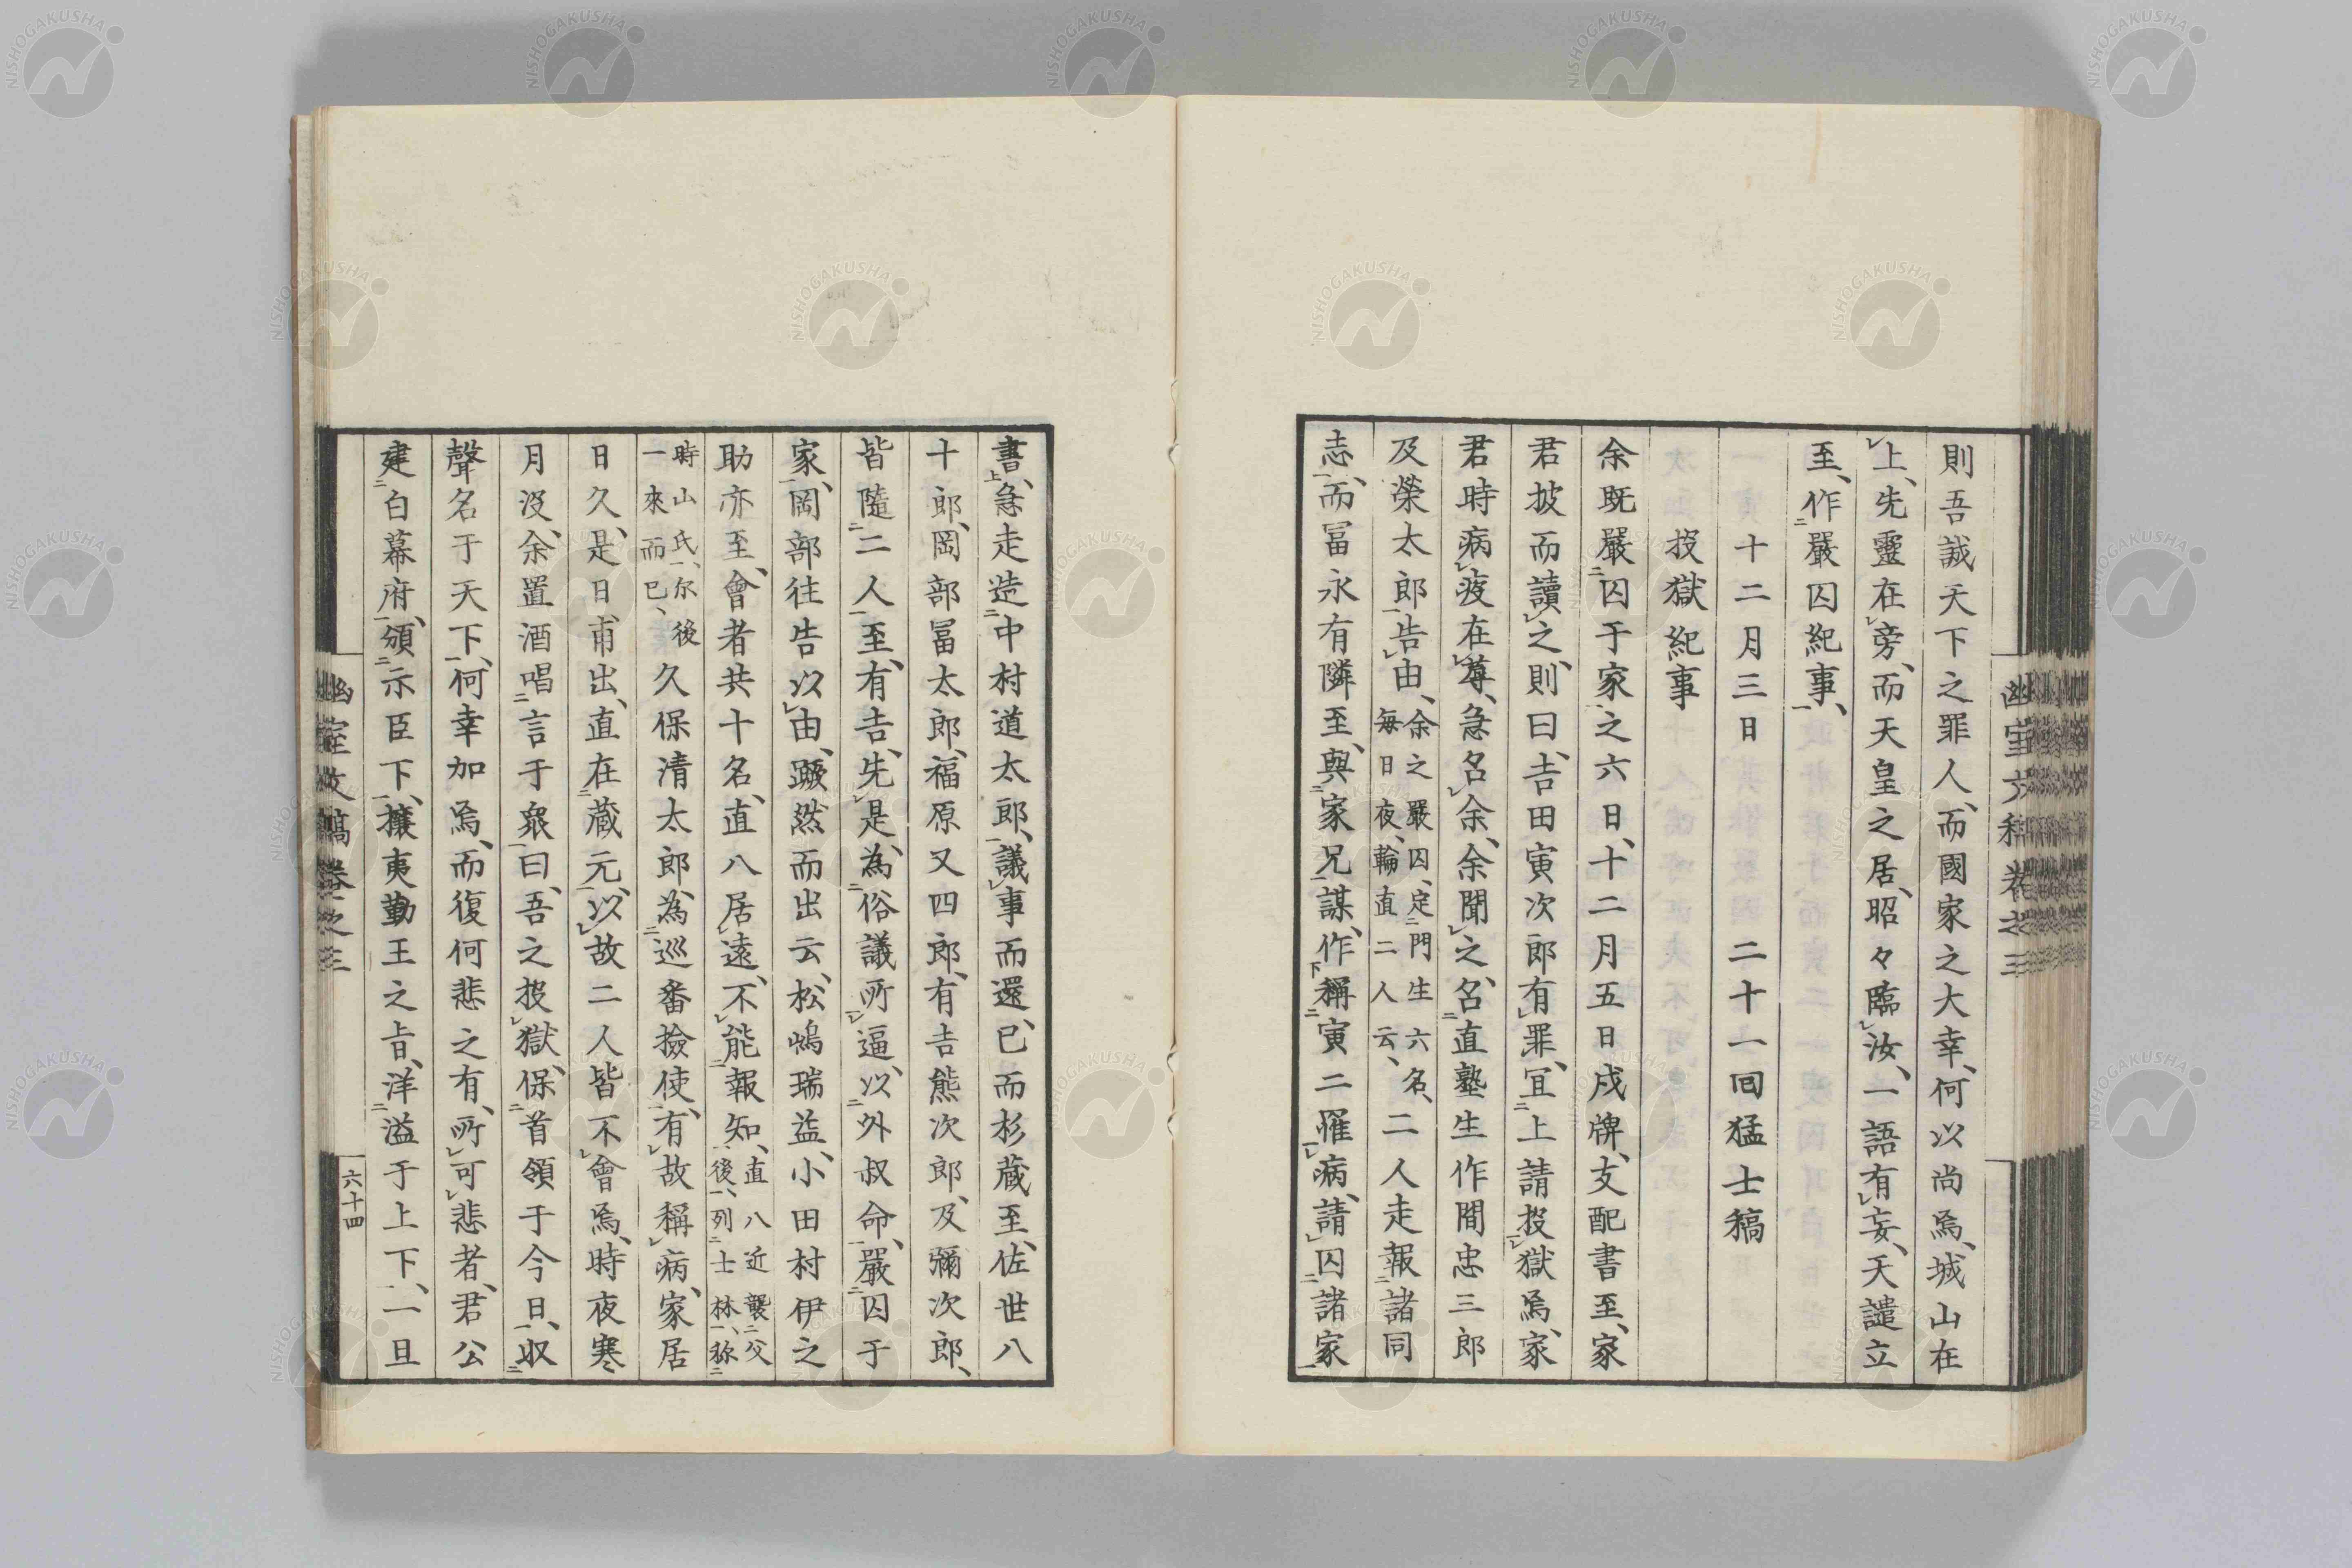 則吾誠天下之罪人、而國家之大幸、何以尚焉、城山在
上、先靈在旁、而天皇之居、昭々臨汝、一語有妄、天譴立
至、作嚴囚紀事、
十二月三日　二十一回猛士稿
投獄紀事
余既嚴囚于家之六日、十二月五日戌牌、支配書至、家
君披而讀之、則曰、吉田寅次郎有罪、宜上請投獄焉、家
君時病疫在蓐、急名余、余聞之、名直塾生作間忠三郎
及榮太郎、告由、余之嚴囚、定門生六名、
每日夜、輪直二人云、二人走報諸同
志、而冨永有隣至、與家兄謀、作稱寅二罹病、請囚諸家
書、急走造中村道太郎、議事而還、已而杉蔵至、佐世八
十郎、岡部冨太郎、福原又四郎、有吉熊次郎、及彌次郎、
皆隨二人至、有吉、先是、為俗議所逼、以外叔命、嚴囚于
家、岡部往告以由、蹶然而出云、松嶋瑞益、小田村伊之
助亦至、會者共十名、直八居遠、不能報知、直八近襲父
後、列士林、称
時山氏、尔後
一來而已、久保清太郎、為巡番撿使、有故稱病、家居
日久、是日、甫出、直在蔵元、以故二人皆不會焉、時夜寒
月沒、余置酒唱言于衆曰、吾之投獄、保首領于今日、取
聲名于天下、何幸加焉、而復何悲之有、所可悲者、君公
建白幕府、頒示臣下、攘夷勤王之旨、洋溢于上下、一旦
幽室文稿卷之三
六十四
NISHOGAKUSHA